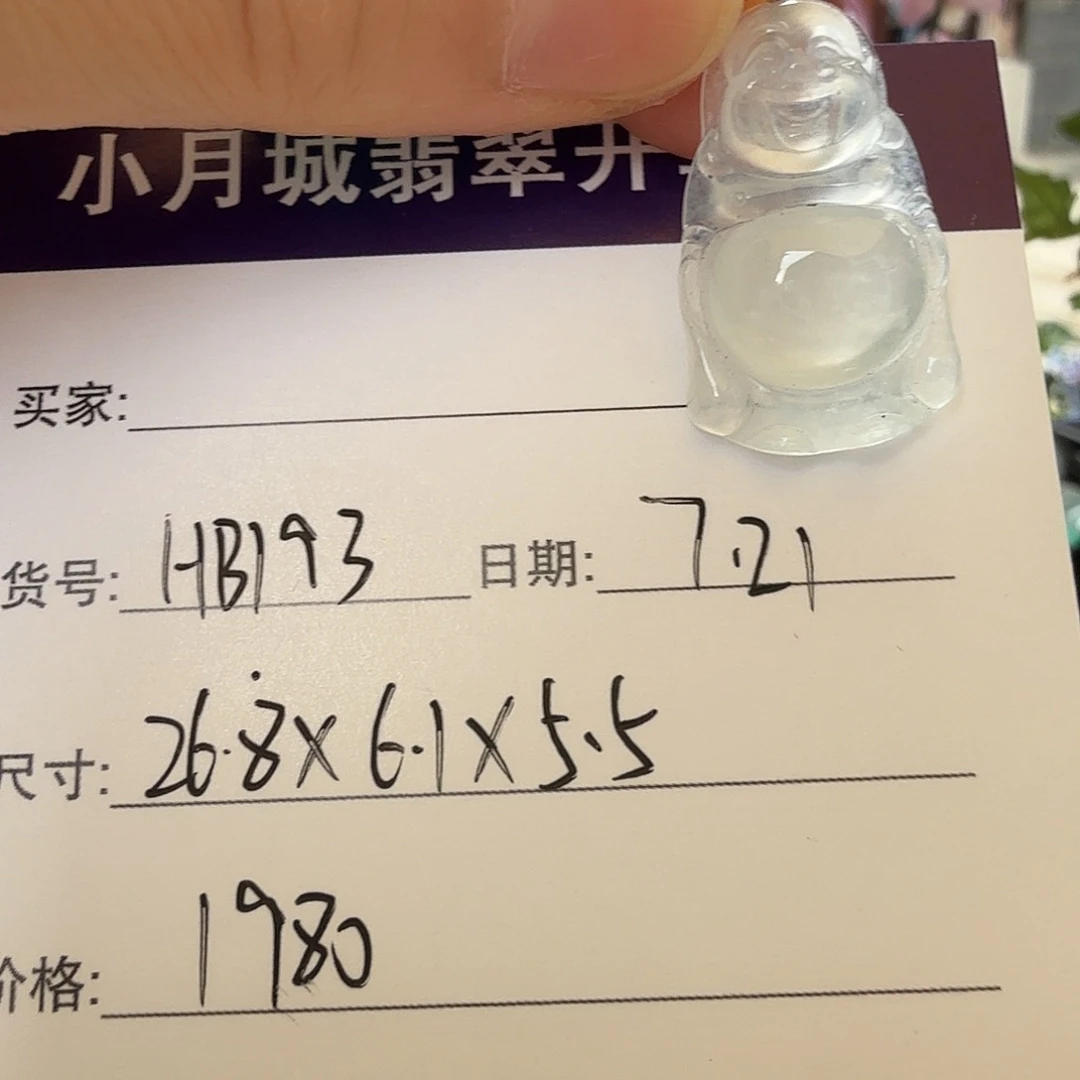 小月城翡翠
买家:
货号: HB193 日期: 7.21
尺寸: 26.8×6.1×5.5
价格: 1980